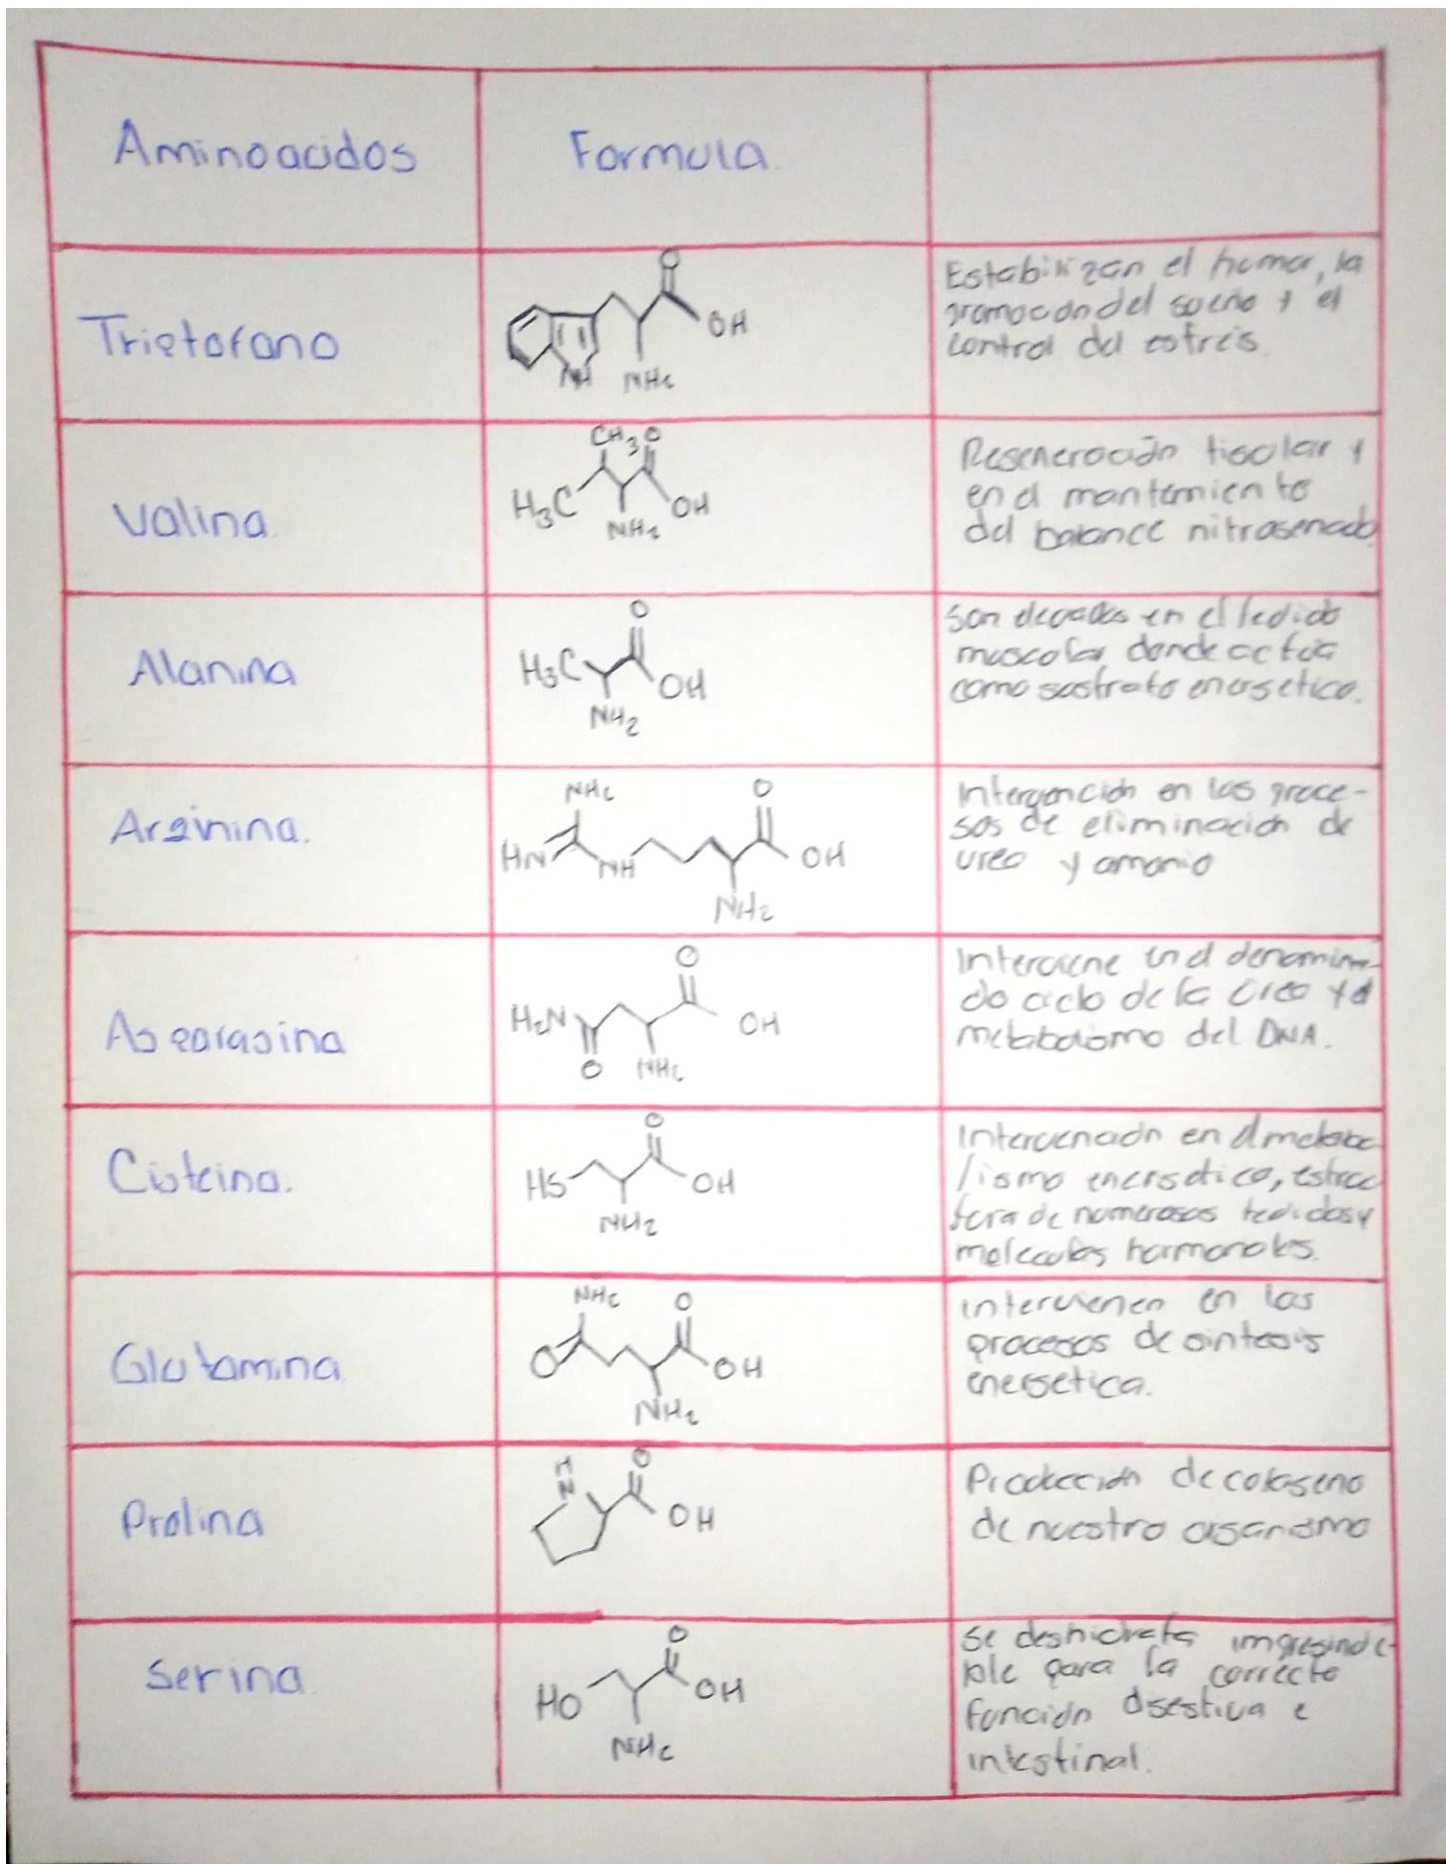 Aminoacidos
Formula.
Trietofano
O
OH
NH
NH2
Estabilizan el humor, la
promocion del sueño y el
control del estres.
Valina.
CH3 O
H3C
OH
NH2
Regeneración tisular y
en el mantemiento
del balance nitrogenado
Alanina
O
H3C
OH
NH2
son en el tedido
muscolar, donde actua
como sustrato energetico.
Arginina.
NH2
O
HN
NH
OH
NH2
en los proce-
sos de eliminación de
urea y amonio
Asparagina
O
H2N
OH
O
NH2
Interviene en el denomina-
do ciclo de la urea y el
metabolismo del DNA.
Cisteina.
O
HS
OH
NH2
Intervención en el metabo
lismo energetico, estruc
tura de numerosos tedidos y
moleculas hormonales.
Glutamina
NH2
O
O
OH
NH2
intervienen en los
procesos de sintesis
energetica.
Prolina
H
N
O
OH
Producción de colageno
de nuestro organismo
Serina.
O
HO
OH
NH2
se deshidrata impresindi-
ble para la correcta
función digestiva e
intestinal.